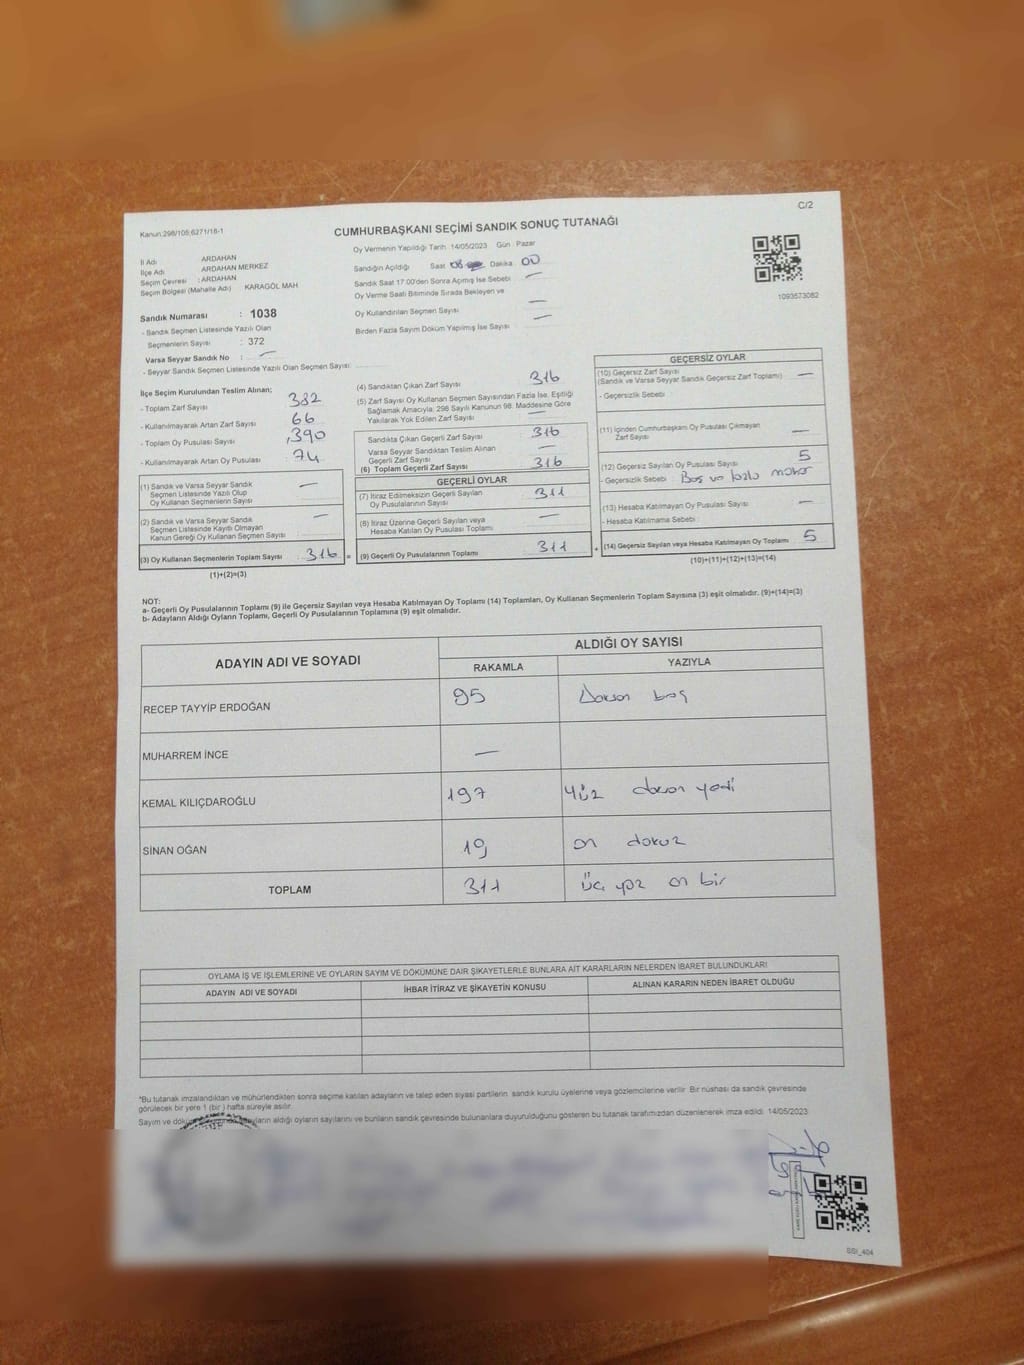 C/2
Kanun:298/105;6271/18-1
CUMHURBAŞKANI SEÇİMİ SANDIK SONUÇ TUTANAĞI
Oy Vermenin Yapıldığı Tarih : 14/05/2023 Gün : Pazar
İl Adı : ARDAHAN
İlçe Adı ARDAHAN MERKEZ
Seçim Çevresi : ARDAHAN
Seçim Bölgesi (Mahalle Adı) KARAGÖL MAH
Sandık Numarası : 1038
- Sandık Seçmen Listesinde Yazılı Olan
Seçmenlerin Sayısı : 372
Varsa Seyyar Sandık No : —
- Seyyar Sandık Seçmen Listesinde Yazılı Olan Seçmen Sayısı:
Sandığın Açıldığı Saat 08 Dakika 00
Sandık Saat 17.00'den Sonra Açımış İse Sebebi : —
Oy Verme Saati Bitiminde Sırada Bekleyen ve
Oy Kullandırılan Seçmen Sayısı : —
Birden Fazla Sayım Döküm Yapılmış İse Sayısı : —
1093573082
İlçe Seçim Kurulundan Teslim Alınan;
- Toplam Zarf Sayısı 382
- Kullanılmayarak Artan Zarf Sayısı 66
- Toplam Oy Pusulası Sayısı 390
- Kullanılmayarak Artan Oy Pusulası 74
(1) Sandık ve Varsa Seyyar Sandık —
Seçmen Listesinde Yazılı Olup
Oy Kullanan Seçmenlerin Sayısı
(2) Sandık ve Varsa Seyyar Sandık —
Seçmen Listesinde Kayıtlı Olmayan
Kanun Gereği Oy Kullanan Seçmen Sayısı
(3) Oy Kullanan Seçmenlerin Toplam Sayısı 316 =
(1)+(2)=(3)
(4) Sandıktan Çıkan Zarf Sayısı 316
(5) Zarf Sayısı Oy Kullanan Seçmen Sayısından Fazla İse, Eşitliği
Sağlamak Amacıyla, 298 Sayılı Kanunun 98. Maddesine Göre
Yakılarak Yok Edilen Zarf Sayısı —
Sandıkta Çıkan Geçerli Zarf Sayısı 316
Varsa Seyyar Sandıktan Teslim Alınan —
Geçerli Zarf Sayısı
(6) Toplam Geçerli Zarf Sayısı 316
GEÇERLİ OYLAR
(7) İtiraz Edilmeksizin Geçerli Sayılan 311
Oy Pusulasının Sayısı
(8) İtiraz Üzerine Geçerli Sayılan veya —
Hesaba Katılan Oy Pusulası Toplamı
(9) Geçerli Oy Pusulalarının Toplamı 311 +
GEÇERSİZ OYLAR
(10) Geçersiz Zarf Sayısı —
(Sandık ve Varsa Seyyar Sandık Geçersiz Zarf Toplamı)
- Geçersizlik Sebebi :
(11) İçinden Cumhurbaşkanı Oy Pusulası Çıkmayan —
Zarf Sayısı
(12) Geçersiz Sayılan Oy Pusulası Sayısı 5
- Geçersizlik Sebebi : Boş ve fazla mühür
(13) Hesaba Katılmayan Oy Pusulası Sayısı —
- Hesaba Katılmama Sebebi :
(14) Geçersiz Sayılan veya Hesaba Katılmayan Oy Toplamı 5
(10)+(11)+(12)+(13)=(14)
NOT:
a- Geçerli Oy Pusulalarının Toplamı (9) ile Geçersiz Sayılan veya Hesaba Katılmayan Oy Toplamı (14) Toplamları, Oy Kullanan Seçmenlerin Toplam Sayısına (3) eşit olmalıdır. (9)+(14)=(3)
b- Adayların Aldığı Oyların Toplamı, Geçerli Oy Pusulalarının Toplamına (9) eşit olmalıdır.
ADAYIN ADI VE SOYADI ALDIĞI OY SAYISI
RAKAMLA YAZIYLA
RECEP TAYYİP ERDOĞAN 95 Doksan beş
MUHARREM İNCE —
KEMAL KILIÇDAROĞLU 197 Yüz doksan yedi
SİNAN OĞAN 19 on dokuz
TOPLAM 311 üç yüz on bir
OYLAMA İŞ VE İŞLEMLERİNE VE OYLARIN SAYIM VE DÖKÜMÜNE DAİR ŞİKAYETLERLE BUNLARA AİT KARARLARIN NELERDEN İBARET BULUNDUKLARI
ADAYIN ADI VE SOYADI İHBAR İTİRAZ VE ŞİKAYETİN KONUSU ALINAN KARARIN NEDEN İBARET OLDUĞU
*Bu tutanak imzalandıktan ve mühürlendikten sonra seçime katılan adayların ve talep eden siyasi partilerin sandık kurulu üyelerine veya gözlemcilerine verilir. Bir nüshası da sandık çevresinde
görülecek bir yere 1 (bir ) hafta süreyle asılır.
Sayım ve aldığı oyların sayılarını ve bunların sandık çevresinde bulunanlara duyurulduğunu gösteren bu tutanak tarafımızdan düzenlenerek imza edildi. 14/05/2023
SSI_404